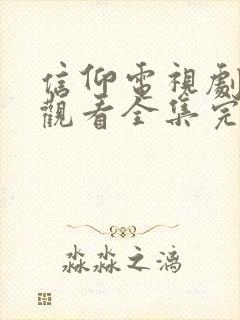 信仰電視劇
觀看全集完
淼淼之漓